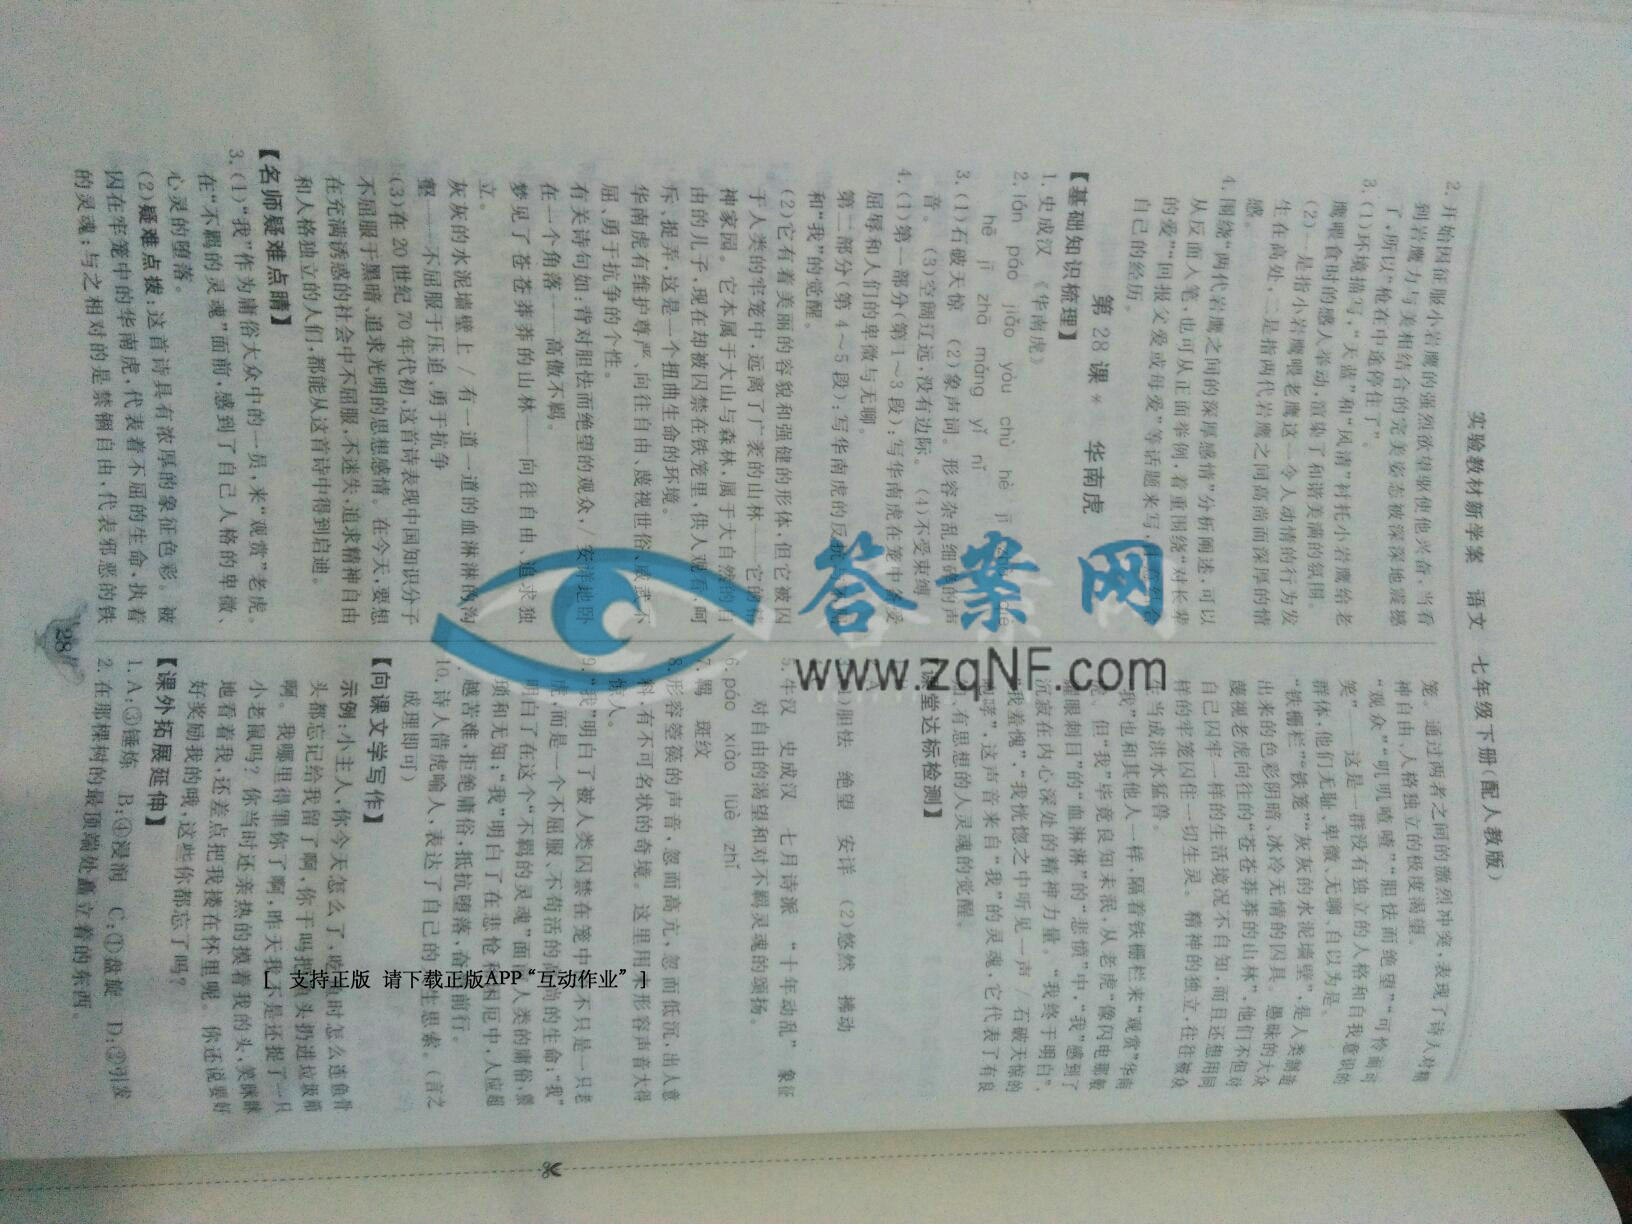 实验教材新学案 语文 七年级下册(配人教版)
2.开始因征服小岩鹰的强烈欲望驱使他兴奋,当看
到岩鹰魔力与美相结合的完美姿态被深深地震撼
了,所以“枪在中途停住了”。
3.(1)环境描写,“天蓝”和“风清”衬托小岩鹰给老
鹰喂食时的感人举动,渲染了和谐美满的氛围。
(2)一是指小岩鹰喂老鹰这一令人动情的行为发
生在高处,二是指两代岩鹰之间高尚而深厚的情
感。
4.围绕“两代岩鹰之间的深厚感情”分析阐述,可以
从反面入笔,也可从正面举例,着重围绕“对长辈
的爱”“回报父爱或母爱”等话题来写,
自己的经历。
第28课* 华南虎
【基础知识梳理】
1.史成汉 《华南虎》
2.lán páo jiǎo yòu chù hè jī
hē jī zhā máng yǐ nǐ
3.(1)石破天惊 (2)象声词。形容杂乱细碎的声
音。 (3)空阔辽远,没有边际。 (4)不受束缚
4.(1)第一部分(第1~3段):写华南虎在笼中备受
屈辱和人们的卑微与无聊。
第二部分(第4~5段):写华南虎的反抗
和“我”的觉醒。
(2)它有着美丽的容貌和强健的形体,但它被囚
于人类的牢笼中,远离了广袤的山林——它的精
神家园。它本属于大山与森林,属于大自然的自
由的儿子,现在却被囚禁在铁笼里,供人观看、呵
斥、捉弄,这是一个扭曲生命的环境。
华南虎有维护尊严、向往自由、蔑视世俗、威武不
屈、勇于抗争的个性。
有关诗句如:背对胆怯而绝望的观众,/安详地卧
在一个角落——高傲不羁。
梦见了苍苍莽莽的山林——向往自由、追求独
立。
灰灰的水泥墙壁上/有一道一道的血淋淋的沟
壑——不屈服于压迫、勇于抗争
(3)在20世纪70年代初,这首诗表现中国知识分子
不屈服于黑暗、追求光明的思想感情。在今天,要想
在充满诱惑的社会中不屈服,不迷失,追求精神自由
和人格独立的人们,都能从这首诗中得到启迪。
【名师疑难点睛】
3.(1)“我”作为庸俗大众中的一员,来“观赏”老虎。
在“不羁的灵魂”面前,感到了自己人格的卑微、
心灵的堕落。
(2)疑难点拨:这首诗具有浓厚的象征色彩。被
囚在牢笼中的华南虎,代表着不屈的生命,执着
的灵魂;与之相对的是禁锢自由,代表邪恶的铁
笼。通过两者之间的激烈冲突,表现了诗人对精
神自由、人格独立的极度渴望。
“观众”“叽叽喳喳”“胆怯而绝望”“可怜而可
笑”——这是一群没有独立的人格和自我意识的
群体,他们无耻、卑微、无聊、自以为是。
“铁栅栏”“铁笼”“灰灰的水泥墙壁”,是人类制造
出来的色彩阴暗、冰冷无情的囚具。愚昧的大众
蔑视老虎向往的“苍苍莽莽的山林”,他们不但对
自己囚牢一样的生活境况不自知,而且还想用同
样的牢笼囚住一切生灵。精神的独立,往往被众
生当成洪水猛兽。
“我”也和其他人一样,隔着铁栅栏来“观赏”华南
虎。但“我”毕竟良知未泯,从老虎“像闪电那般
耀眼刺目”的“血淋淋”的“悲愤”中,“我”感到了
沉寂在内心深处的精神力量。“我终于明白”,
“我羞愧”,“我恍惚之中听见一声/石破天惊的
咆哮”,这声音来自“我”的灵魂,它代表了有良
知、有思想的人灵魂的觉醒。
【课堂达标检测】
胆怯 绝望 安详 (2)悠然 拂动
5.牛汉 史成汉 七月诗派 “十年动乱” 象征
对自由的渴望和对不羁灵魂的颂扬。
6.páo xiào lüè zhǐ
7.羁 斑纹
8.形容箜篌的声音,忽而高亢,忽而低沉,出人意
料,有不可名状的奇境。这里用来形容声音大得
惊人。
9.“我”明白了被人类囚禁在笼中的不只是一只老
虎,而是一个不屈服、不苟活的高尚的生命;“我”
明白了在这个“不羁的灵魂”面前人类的庸俗,猥
琐和无知;“我”明白了在悲怆和困厄中,人应超
越苦难,拒绝庸俗,抵抗堕落,奋力前行。
10.诗人借虎喻人,表达了自己的人生思索。(言之
成理即可)
【向课文学写作】
示例:小主人,你今天怎么了,吃鱼时怎么连鱼骨
头都忘记给我留了啊,你干吗把鱼头扔进垃圾箱
啊。我哪里得罪你了啊,昨天我不是还捉了一只
小老鼠吗?你当时还亲热的摸着我的头,笑眯眯
地看着我,还差点把我搂在怀里呢。你还说要好
好奖励我的哦,这些你都忘了吗?
【课外拓展延伸】
1.A:③锤炼 B:④浸润 C:①盘旋 D:②引发
2.在那棵树的最顶端处矗立着的东西。
28
答案网
www.zqNF.com
[ 支持正版 请下载正版APP“互动作业” ]